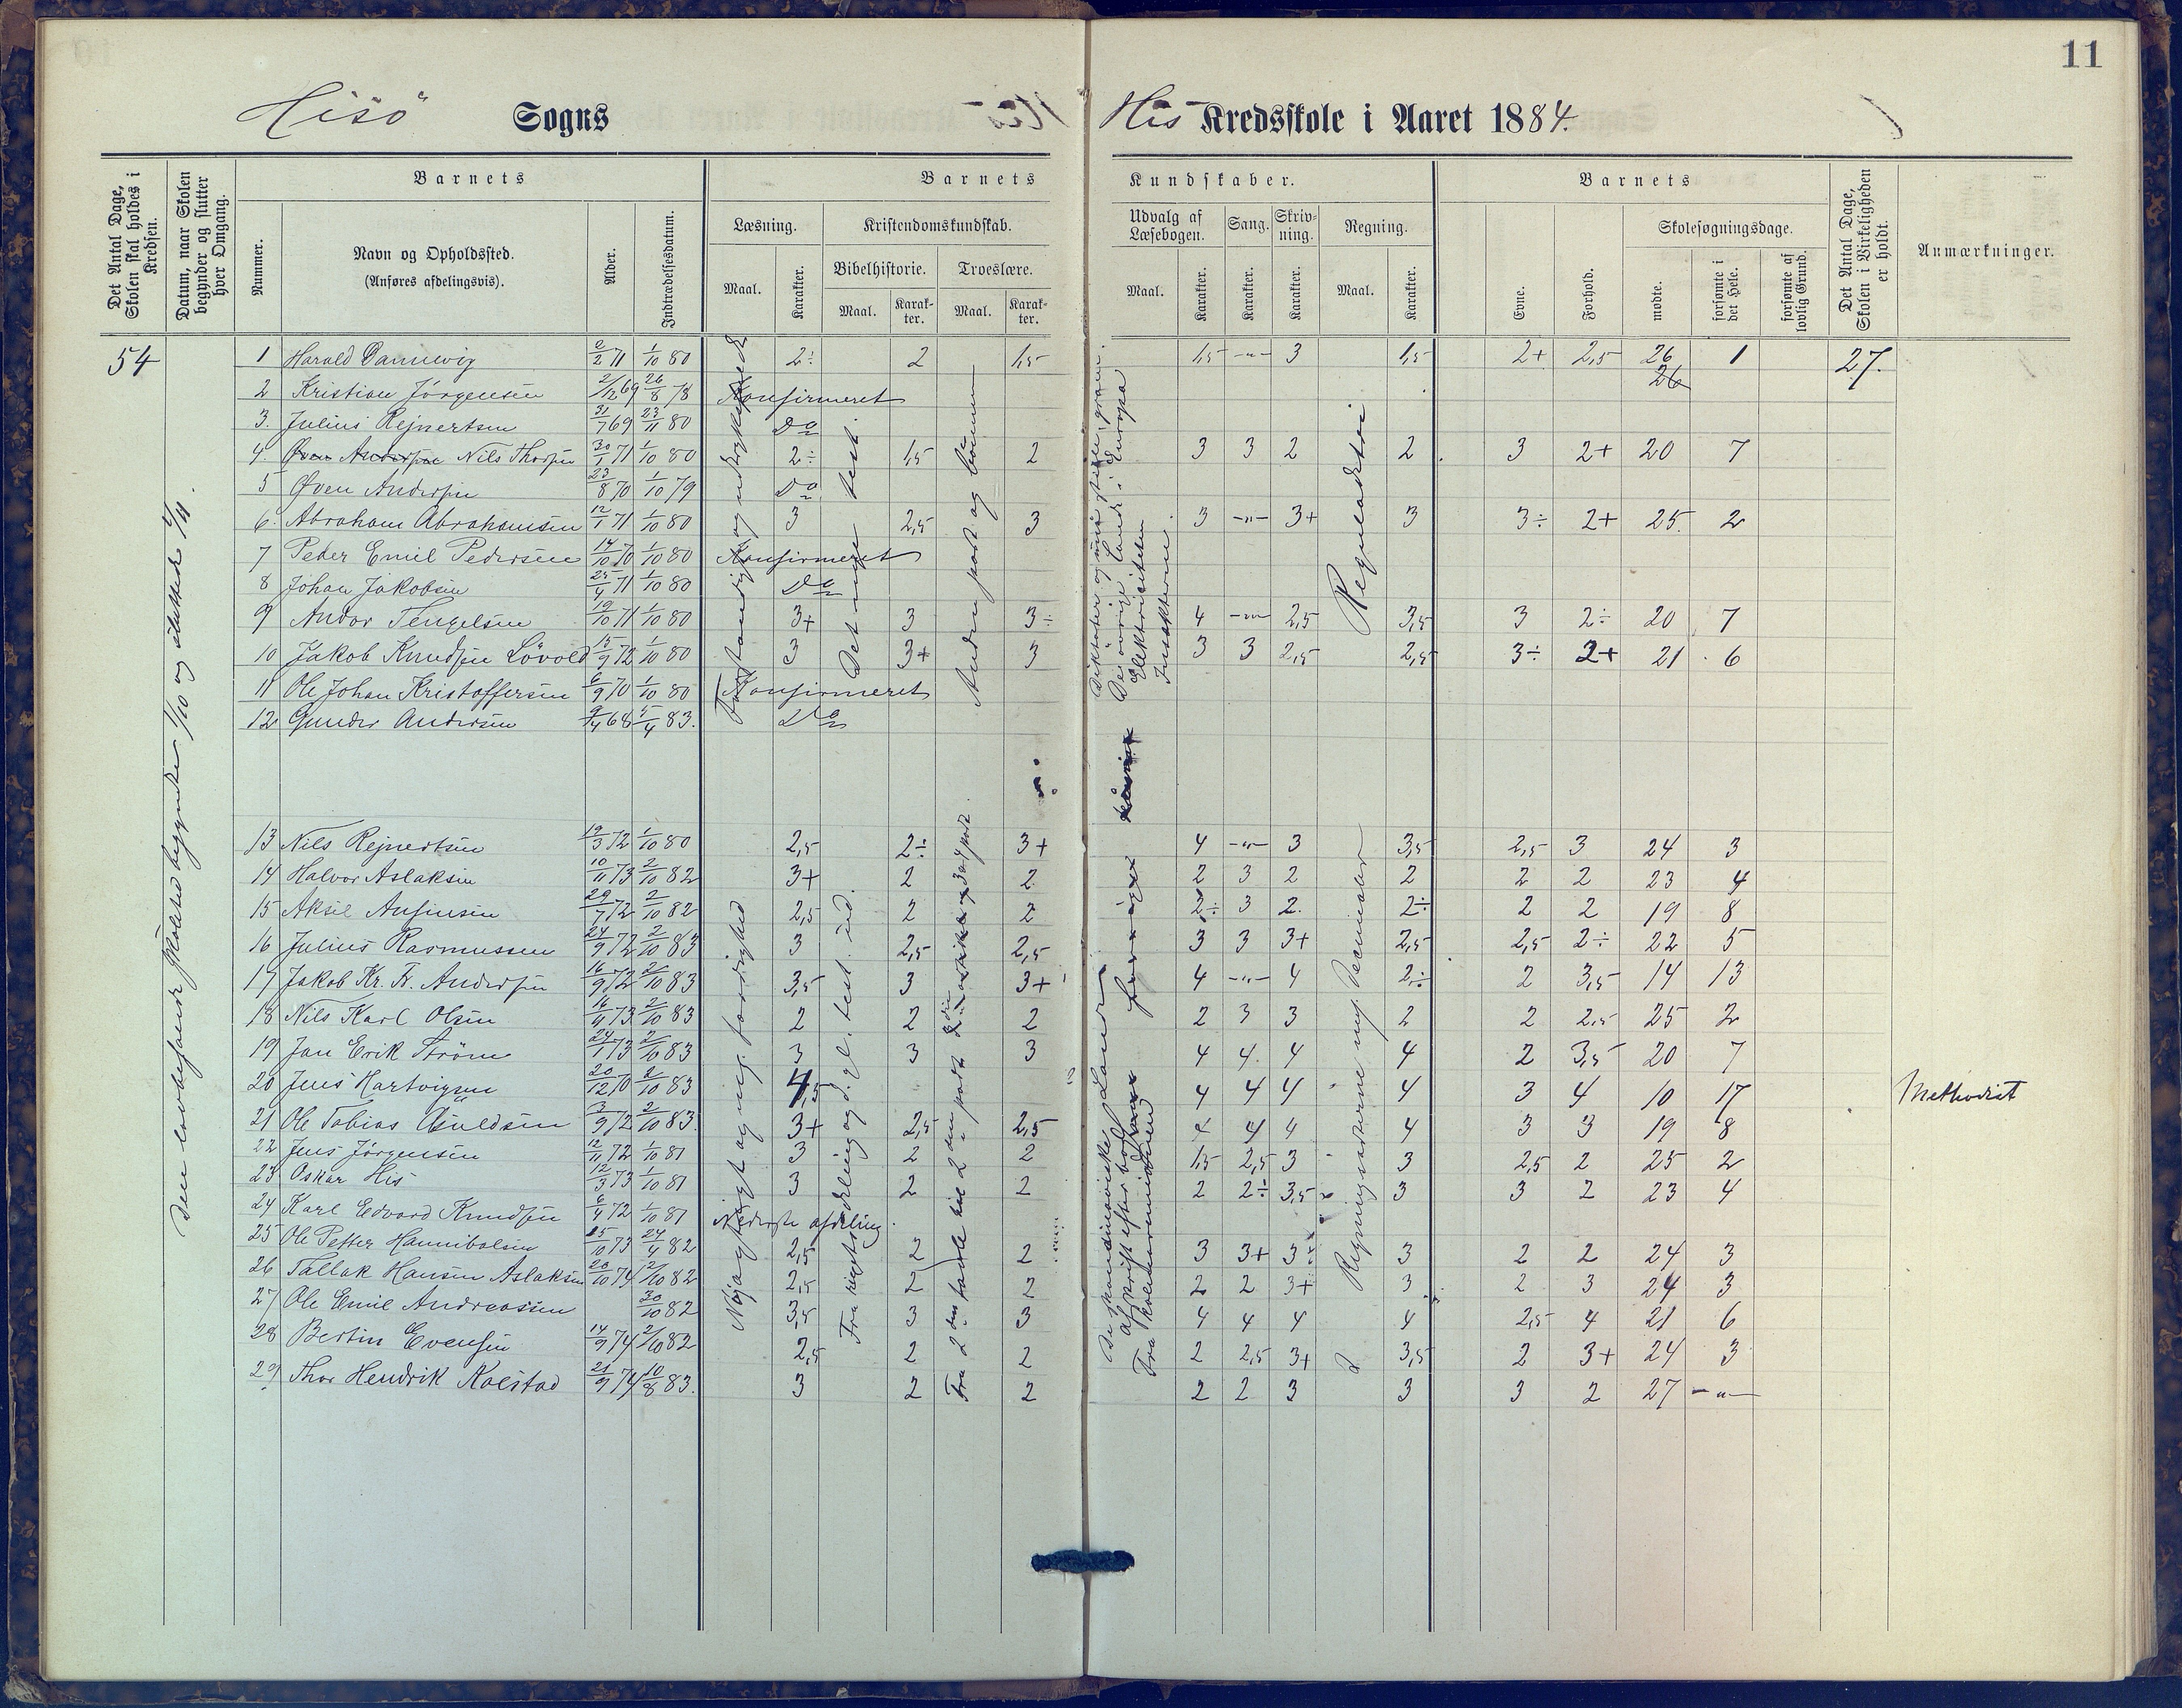 11
Hisö Sogns His Kredsskole i Aaret 1884.
Det Antal Dage, Skolen skal holdes i Kredsen.
Datum, naar Skolen begynder og slutter hver Omgang.
Barnets
Nummer.
Navn og Opholdssted.
(Anføres afdelingsvis).
Alder.
Indtrædelsesdatum.
Barnets Kundskaber.
Læsning.
Maal.
Karakter.
Kristendomskundskab.
Bibelhistorie.
Maal.
Karakter.
Troeslære.
Maal.
Karakter.
Udvalg af Læsebogen.
Maal.
Karakter.
Sang.
Karakter.
Skrivning.
Karakter.
Regning.
Maal.
Karakter.
Barnets
Evne.
Forhold.
Skolesøgningsdage.
mødte.
forsømte i det Hele.
forsømte af lovlig Grund.
Det Antal Dage, Skolen i Virkeligheden er holdt.
Anmærkninger.
54
1 Harald Dannevig 2/2 71 1/10 80 2÷ 2 1,5 1,5 -"- 3 1,5 2+ 2,5 26 1 27.
26
2 Kristian Jörgensen 2/12 69 26/8 78 Konfirmeret
3. Julius Rejnertsen 31/7 69 23/11 80 Do
4. Øven Andersen Nils Thorsen 30/1 71 1/10 80 2÷ 1,5 2 3 3 2 2 3 2+ 20 7
5 Øven Andersen 23/8 70 1/10 79 Do
6. Abraham Abrahamsen 12/1 71 1/10 80 3 2,5 3 3 -"- 3+ 3 3÷ 2+ 25. 2
7 Peder Emil Pedersen 14/10 70 1/10 80 Konfirmeret
8 Johan Jakobsen 25/4 71 1/10 80 Do
9 Andor Tengelsen 19/10 71 1/10 80 3+ 3 3÷ 4 -"- 2,5 3,5 3 2÷ 20 7
10 Jakob Knudsen Lövold 15/9 72 1/10 80 3 3+ 3 3 3 2,5 2,5 3÷ 2+ 21 6
11 Ole Johan Kristoffersen 6/9 70 1/10 80 Konfirmeret
12 Gunder Andersen 9/4 68 5/4 83. Do
13 Nils Rejnertsen 19/3 72 1/10 80 2,5 2÷ 3+ 4 -"- 3 3,5 2,5 3 24 3
14 Halvor Aslaksen 10/11 73 2/10 82 3+ 2 2 2 3 2 2 2 2 23 4
15 Aksel Ansinsen 29/7 72 2/10 82 2,5 2 2 2÷ 3 2. 2÷ 2 2 19 8
16 Julius Rasmussen 24/9 72 2/10 83 3 2,5 2,5 3 3 3+ 2,5 2,5 2÷ 22 5
17 Jakob Kr. Fr. Andersen 16/9 72 2/10 83 3,5 3 3+ 4 -"- 4 2÷ 2 3,5 14 13
18 Nils Karl Olsen 16/11 73 2/10 83 2 2 2 2 3 3 2 2 2,5 25 2
19 Jan Erik Ström 24/1 73 2/10 83 3 3 3 4 4. 4 4 2 3,5 20 7
20 Jens Hartvigsen 20/12 70 2/10 83 4,5 4 4 4 4 3 4 10 17 Methodist
21 Ole Tobias 3/9 72 2/10 83. 3+ 2,5 2,5 4 4 4 4 3 3 19 8
22 Jens Jörgensen 12/11 72 1/10 81 3 2 2 1,5 2,5 3 3 2,5 2 25 2
23 Oskar His 12/3 73 1/10 81 3 2 2 2 2÷ 3,5 3 3 2 23 4
24 Karl Edvard Knudsen 6/4 72 1/10 81 Nederste afdeling.
25 Ole Petter Hannibalsen 25/10 73 24/4 82 2,5 2 2 3 3+ 3÷ 3 2 2 24 3
26 Tallak Hansen Aslaksen 20/10 74 2/10 82 2,5 2 2 2 2 3+ 3 2 3 24 3
27 Ole Emil Andreassen 30/10 82 3,5 3 3 4 4 4 4 2,5 4 21 6
28 Bertin Evensen 14/9 74 2/10 82 2,5 2 2 2 2,5 3+ 3,5 2 3+ 24 3
29 Thor Hendrik Kolstad 21/9 74 10/8 83. 3 2 2 2 2 3 3 3 2 27 -"-
Den lovbefalede Skoletid begyndte 1/10 og sluttede 4/11.
Det nye test.
Anden part og bönnen
De övrige Lande i Europa
Elektrisiteten
Insekterne
Reguladetri
Nøjagtigt og nog. færdighed
De skandinaviske Lande
Regningsarterne